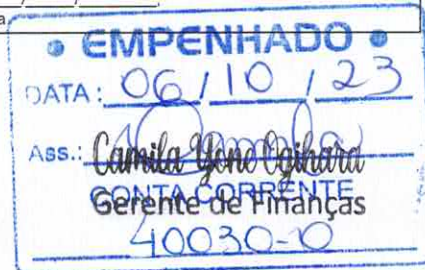 a
• EMPENHADO •
DATA: 06/10/23
Ass.: Camila Yone Ogihara
CONTA CORRENTE
Gerente de Finanças
40030-0